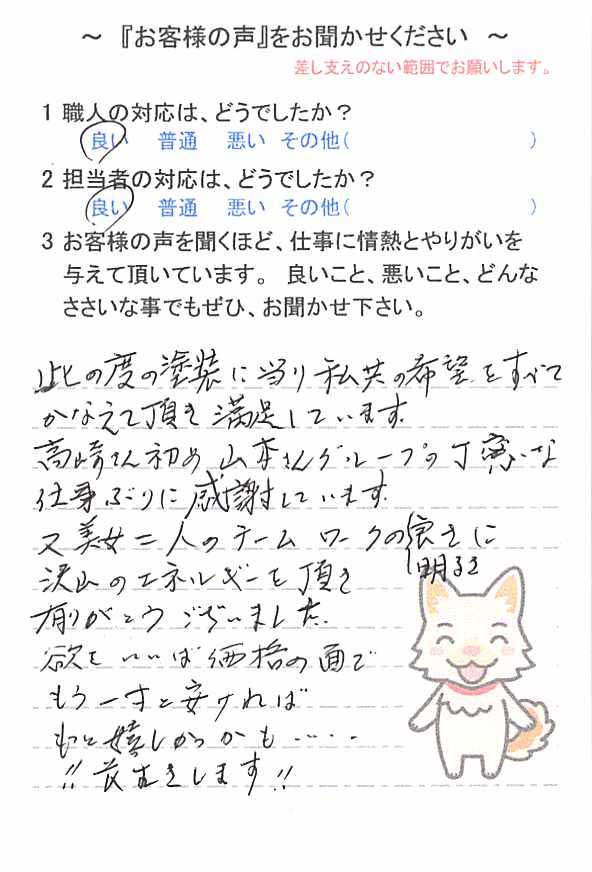 ～ 『お客様の声』をお聞かせください ～
差し支えのない範囲でお願いします。
1 職人の対応は、どうでしたか？
良い 普通 悪い その他( )
2 担当者の対応は、どうでしたか？
良い 普通 悪い その他( )
3 お客様の声を聞くほど、仕事に情熱とやりがいを
与えて頂いています。 良いこと、悪いこと、どんな
ささいな事でもぜひ、お聞かせ下さい。
此の度の塗装に当り私共の希望をすべて
かなえて頂き満足しています.
高崎さん初め山本さんグループの丁寧いな
仕事ぶりに感謝しています.
又美女二人のチームワークの良さに
明るさ
沢山のエネルギーを頂き
有りがとうございました.
欲をいいば価格の面で
もう一寸と安ければ
もっと嬉しかっかも・・・・
!! 長生きします!!